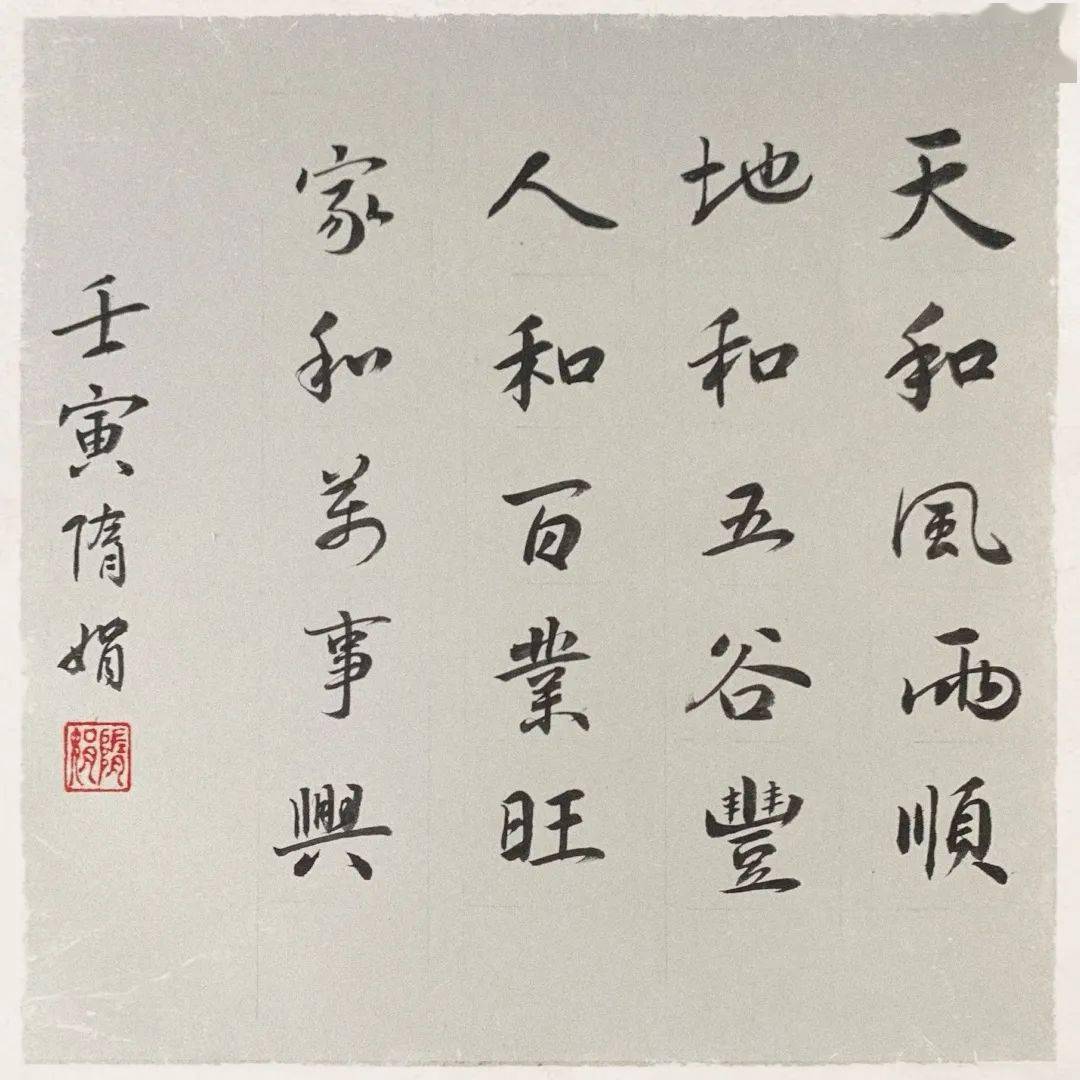 天和風雨順
地和五谷豐
人和百業旺
家和萬事興
壬寅隋娟
隋娟